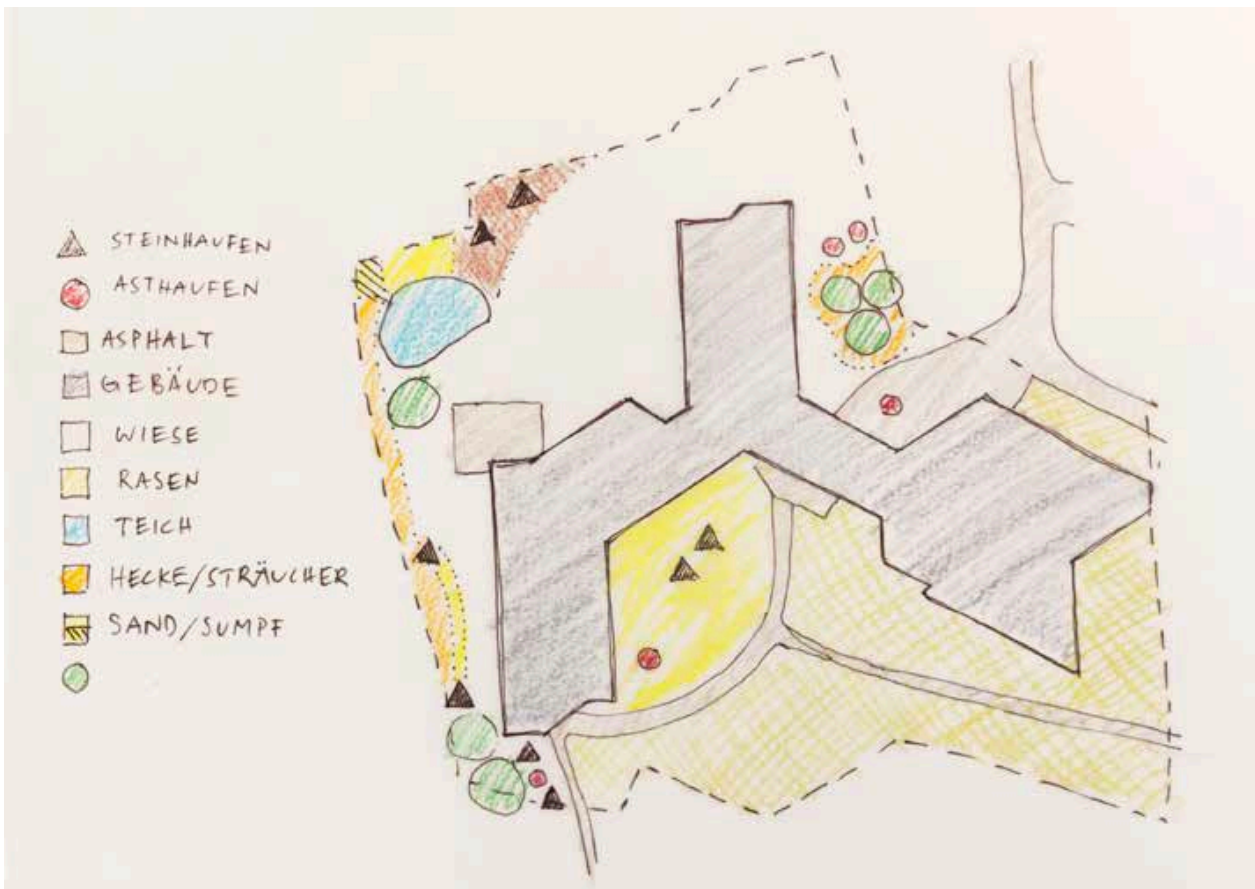 STEINHAUFEN
ASTHAUFEN
ASPHALT
GEBÄUDE
WIESE
RASEN
TEICH
HECKE/STRÄUCHER
SAND/SUMPF